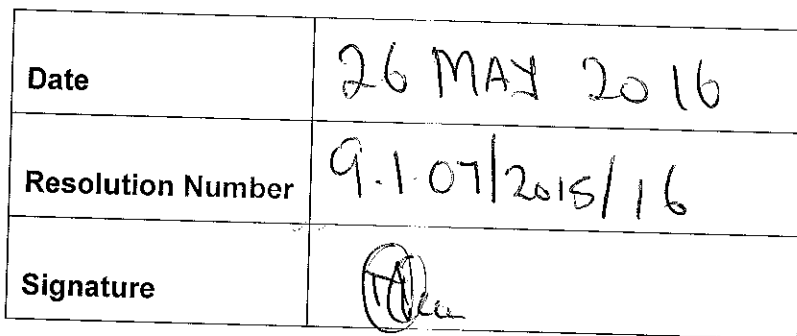 Date 26 MAY 2016
Resolution Number 9.1.07/2015/16
Signature